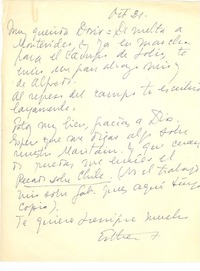 Oct 21.
Muy querida Doris = De vuelta a
Montevideo y ya en marcha
para el Campo de Solís, te
envío un gran abrazo mío y
de Alfredo.
Al regreso del campo te escribiré
largamente.
Estoy muy bien, gracias a Dios.
Espero que me digas algo sobre
nuestro Maritain. Y que cuando
puedas me envíes el
Recado sobre Chile. (No el trabajo
mío sobre Gab. pues aquí tengo
copia).
Te quiere siempre mucho
Esther